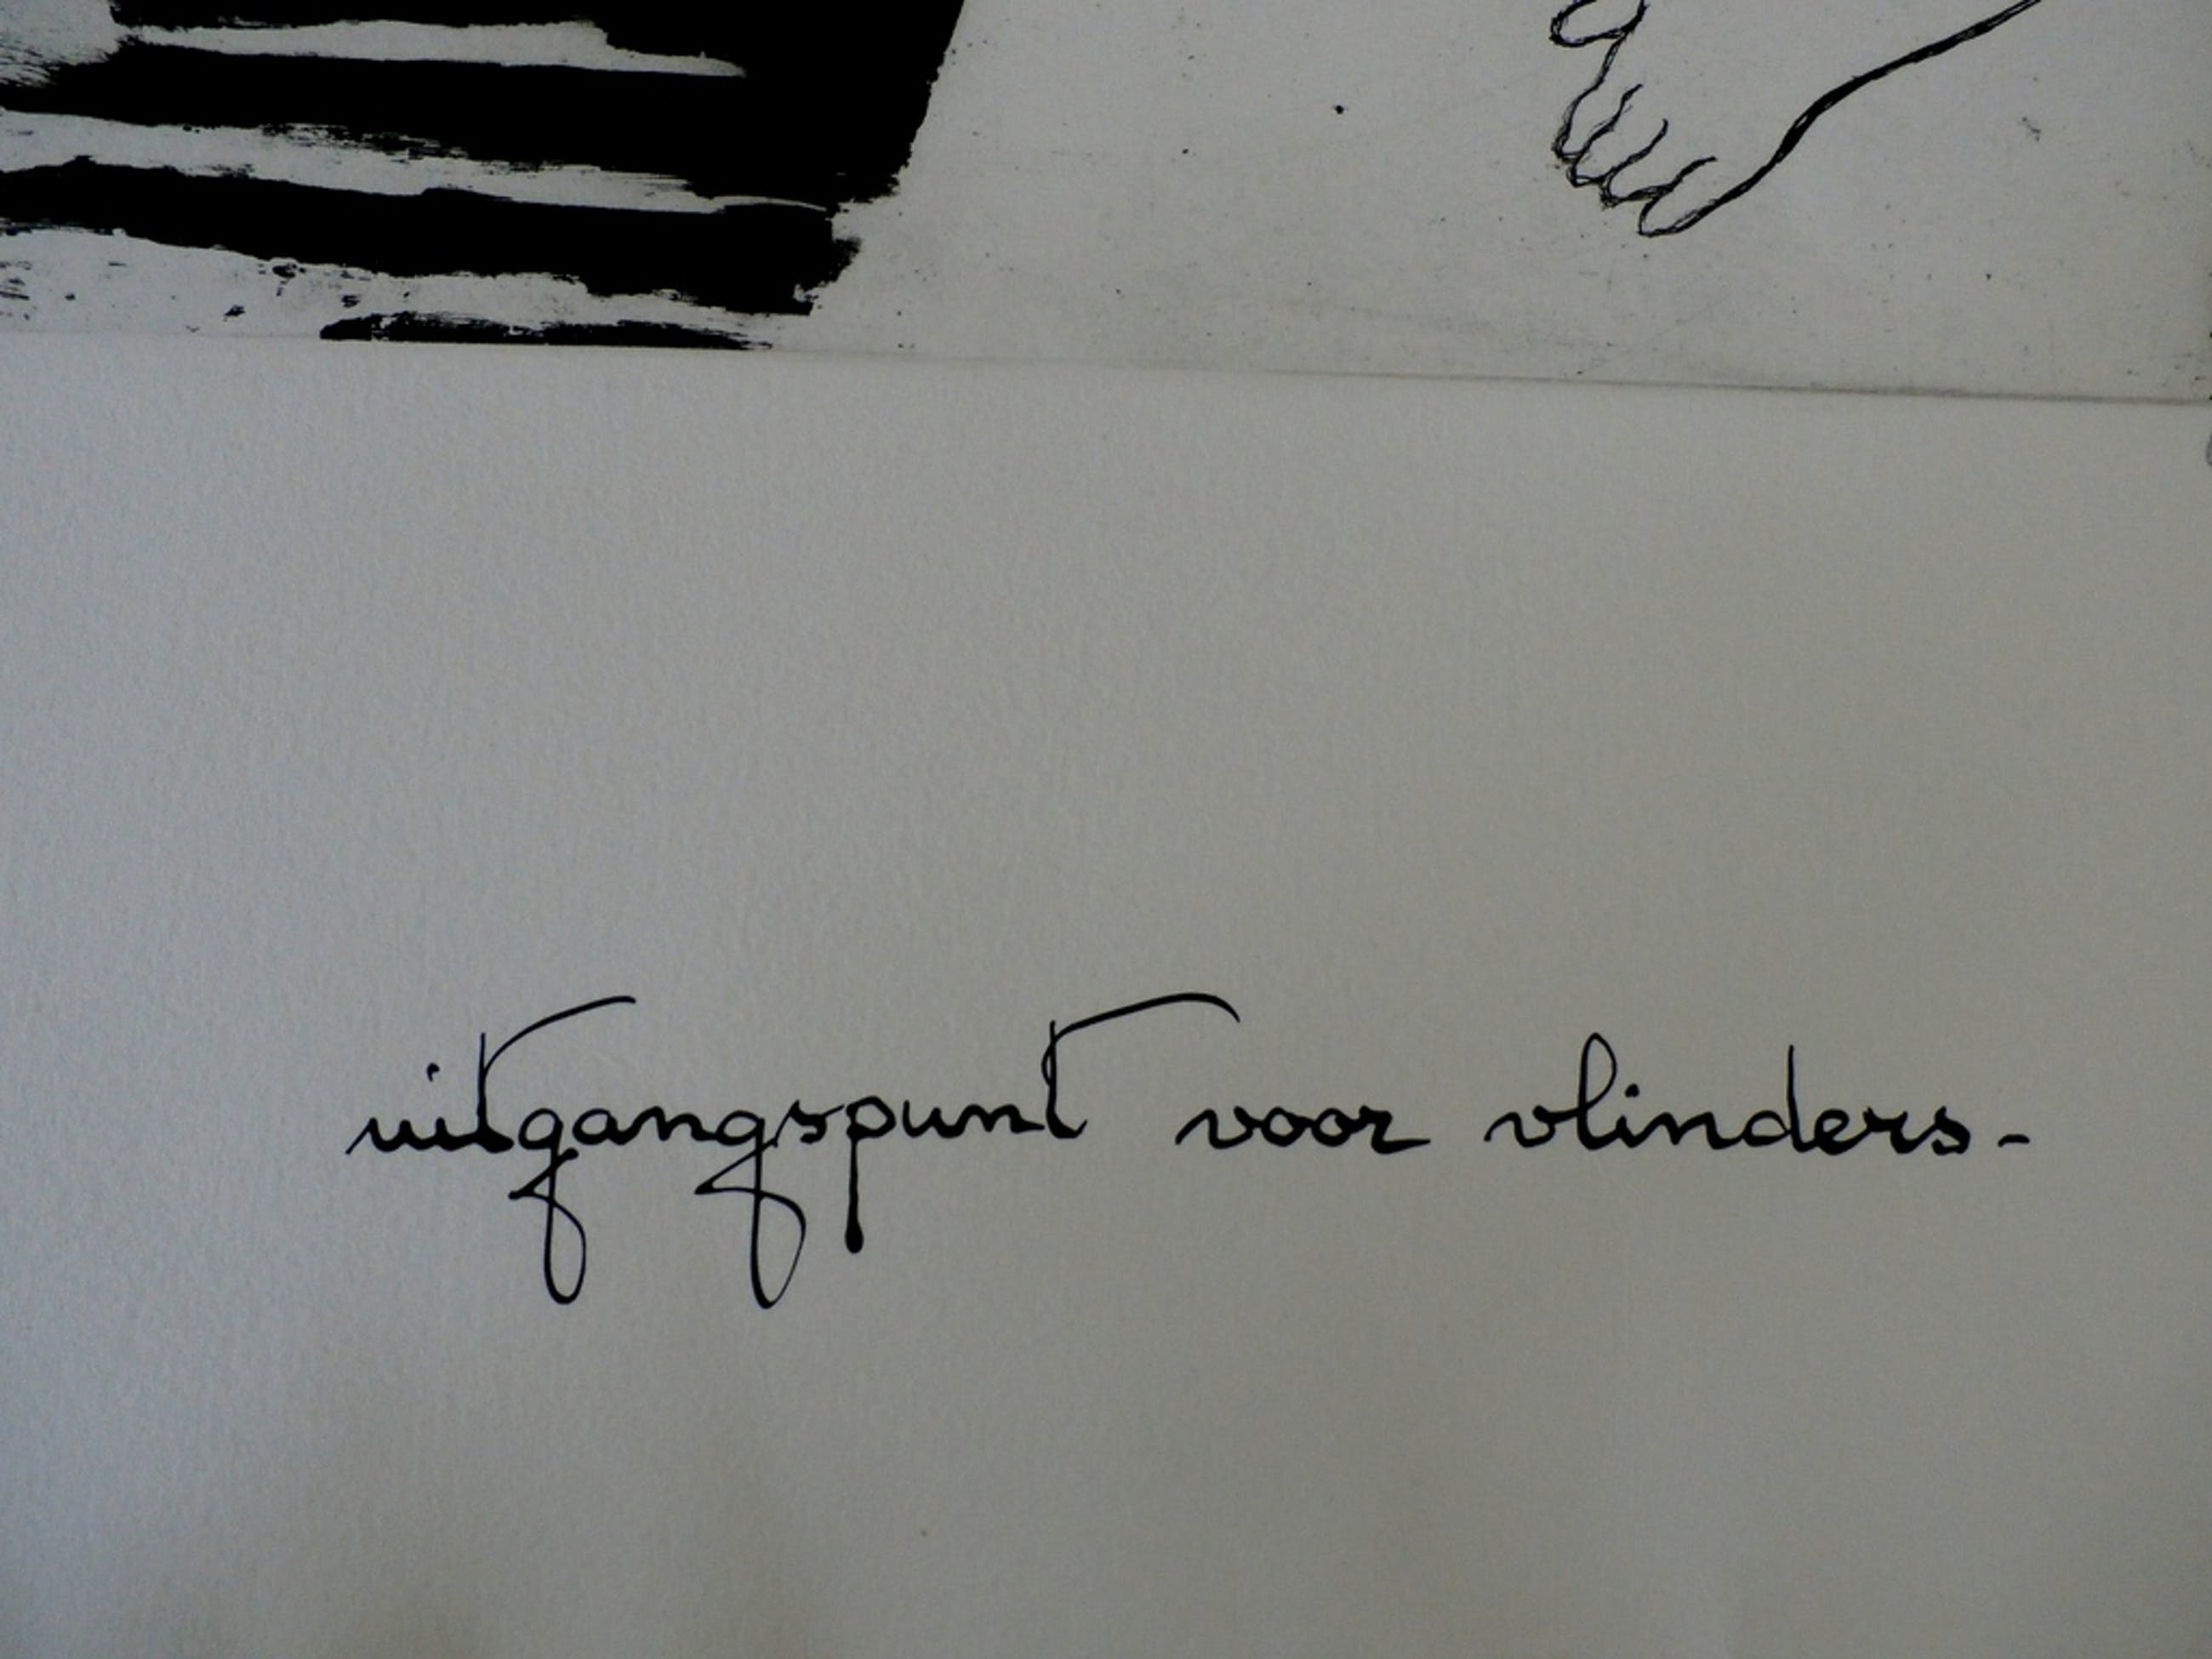 uitgangspunt voor vlinders-